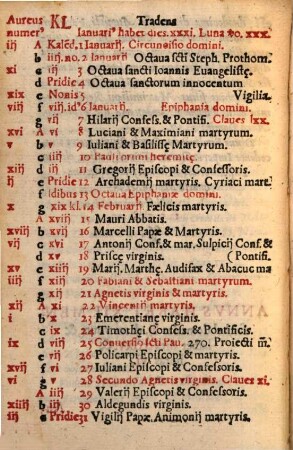 Aureus KL Tradens
numer⁹ Ianuari⁹ habet dies.xxxi. Luna ꝟo. xxx.
iij A Kalēd.1 Ianuarij. Circuncisio domini.
b iiij.no.2 Ianuarij Octaua scti Steph. Prothom.
xi c iij 3 Octaua sancti Ioannis Euangelistę.
d Pridie 4 Octaua sanctorum innocentum
xix e Nonis 5 Vigilia.
viij f viij.id⁹6 Ianuarij. Epiphania domini.
g vij 7 Hilarij Confess. & Pontifi. Claues IXX.
xvi A vi 8 Luciani & Maximiani martyrum.
v b v 9 Iuliani & Basilissę Martyrum.
c iiij 10 Pauli primi heremitę.
xiij d iij 11 Gregorij Episcopi & Confessoris.
ij e Pridie 12 Archademij martyris. Cyriaci mart.
f Idibus 13 Octaua Epiphanię domini.
x g xix kl.14 Februarij Fœlicis martyris.
A xviij 15 Mauri Abbatis.
xviij b xvij 16 Marcelli Papæ & Martyris.
vij c xvi 17 Antonij Conf. & mar. Sulpicij Conf &
d xv 18 Priscę virginis. (Pontifi.
xv e xiiij 19 Marij, Marthę, Audifax & Abacuc ma
iiij f xiij 20 Fabiani & Sebastiani martyrum.
g xij 21 Agnetis virginis & martyris.
xij A xi 22 Vincentij martyris.
i b x 23 Emerentianę virginis.
c ix 24 Timothęi Confess. & Pontificis.
ix d viij 25 Conuersio scti Pau. 270. Proiecti m̄.
e vij 26 Policarpi Episcopi & martyris.
xvij f vi 27 Iuliani Episcopi & Confessoris.
vi g v 28 Secundo Agnetis virginis. Claues xi.
A iiij 29 Valerij Episcopi & Confessoris.
xiiij b iij 30 Aldegundis virginis.
iij c Pridie 31 Vigilij Papæ. Animonij martyris.